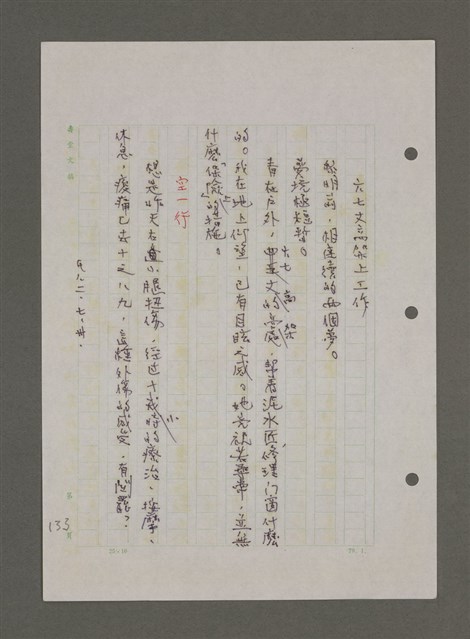 六七丈高架上工作
黎明前,相連續的兩個夢。
夢境極短暫。
春在戶外,六七丈高架的高處,幫著泥水匠修理門窗什麼
的。我在地上仰望,已有目眩之感。她竟視若無事,並無
什麼「保險」的措施。
空一行
想是昨天右小腿扭傷,經過十幾小時的療治、按摩、
休息,痠痛已去十之八九,這種外傷的感受,有關聯?
九八二、七、卅.
133
25×10